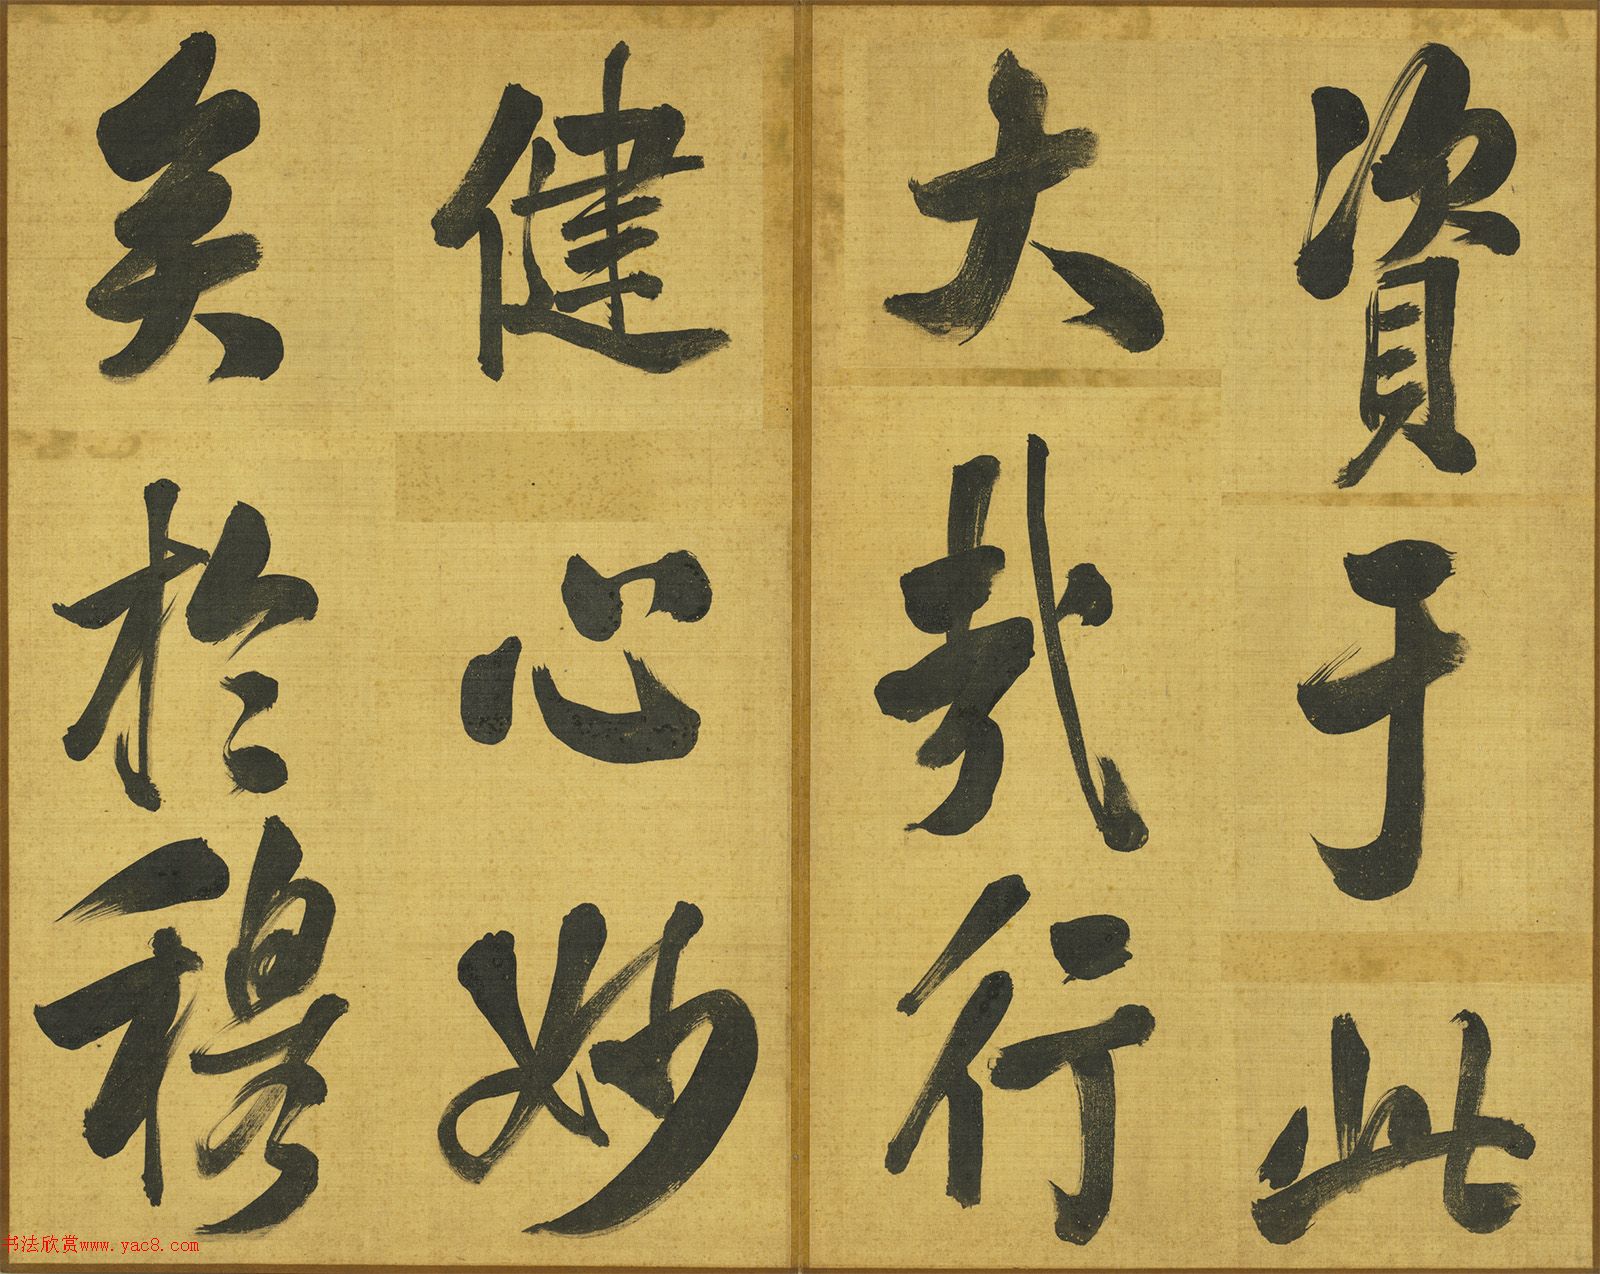 資于此
大哉行
健心妙
矣於穆
书法欣赏www.yac8.com